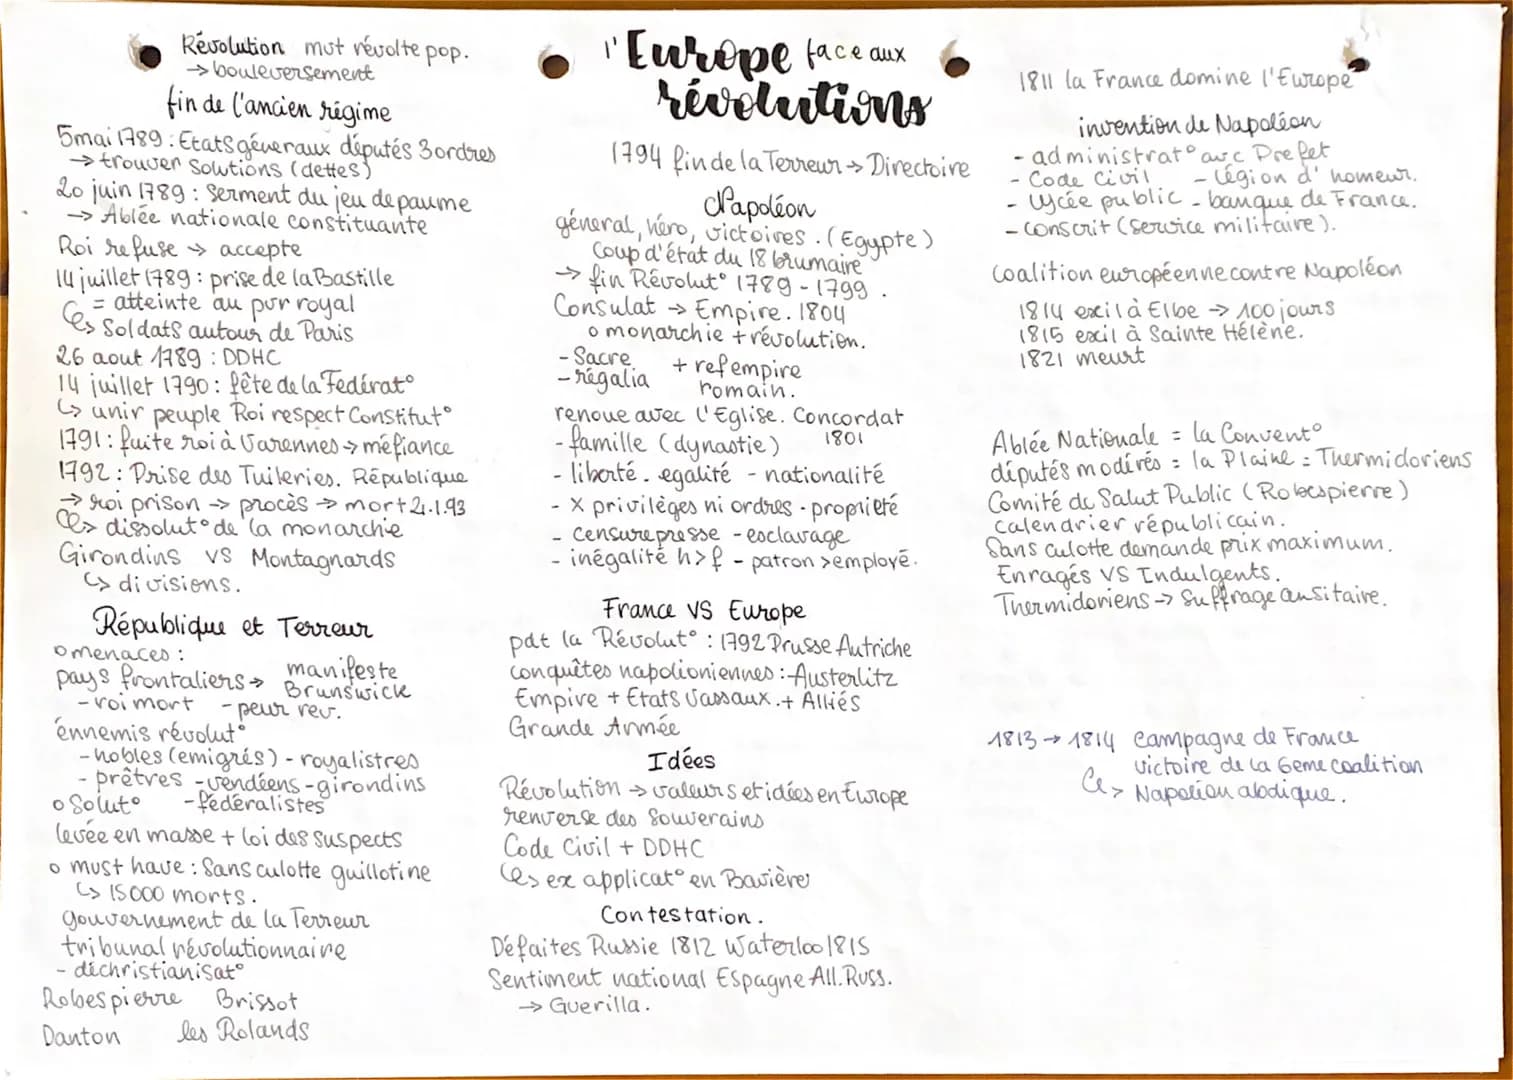 Révolution mvt révolte pop.
→ bouleversement
fin de l'ancien régime
5 mai 1789 : Etats géneraux députés 3 ordres
→ trouver solutions (dettes)
20 juin 1789 : Serment du jeu de paume
→ Ablée nationale constituante
Roi refuse → accepte
14 juillet 1789 : prise de la Bastille
= atteinte au pvr royal
↳ Soldats autour de Paris
26 aout 1789 : DDHC
14 juillet 1790 : fête de la Fedérat°
↳ unir peuple Roi respect Constitut°
1791 : fuite roi à Varennes → méfiance
1792 : Prise des Tuileries. République
→ roi prison → procès → mort 21.1.93
↳ dissolut° de la monarchie
Girondins vs Montagnards
↳ divisions.
République et Terreur
o menaces :
pays frontaliers → manifeste Brunswick
- roi mort - peur rev.
ennemis révolut°
- nobles (emigrés) - royalistres
- prêtres - vendéens - girondins
- fédéralistes
o Solut°
levée en masse + loi des suspects
o must have : Sans culotte guillotine
↳ 15000 morts.
gouvernement de la Terreur
tribunal révolutionnaire
- déchristianisat°
Robespierre Brissot
Danton les Rolands
l'Europe face aux
révolutions
1794 fin de la Terreur → Directoire
Napoléon
géneral, héro, victoires. (Egypte)
Coup d'état du 18 brumaire
→ fin Révolut° 1789 - 1799.
Consulat → Empire. 1804
o monarchie + révolution.
- Sacre
- régalia + ref empire romain.
renoue avec l'Eglise. Concordat 1801
- famille (dynastie)
- liberté. egalité - nationalité
- X privilèges ni ordres - propriété
- censure presse - esclavage
- inégalité h>f - patron > employé.
France VS Europe
pdt la Révolut° : 1792 Prusse Autriche
conquêtes napolioniennes : Austerlitz
Empire + Etats Vassaux. + Alliés
Grande Armée
Idées
Révolution → valeurs et idées en Europe
renverse des Souverains
Code Civil + DDHC
↳ ex applicat° en Bavière
Contestation.
Défaites Russie 1812 Waterloo 1815
Sentiment national Espagne All. Russ.
→ Guerilla.
1811 la France domine l'Europe
invention de Napoléon
- administrat° avc Prefet
- Code Civil - Légion d'honneur.
- Lycée public - banque de France.
- conscrit (Service militaire).
Coalition européenne contre Napoléon
1814 exil à Elbe → 100 jours
1815 exil à Sainte Hélène.
1821 meurt
Ablée Nationale = la Convent°
députés modérés = la Plaine = Thermidoriens
Comité de Salut Public (Robespierre)
calendrier républicain.
Sans culotte demande prix maximum.
Enragés VS Indulgents.
Thermidoriens → Suffrage censitaire.
1813 → 1814 Campagne de France
victoire de la 6eme coalition
↳ Napoléon abdique.